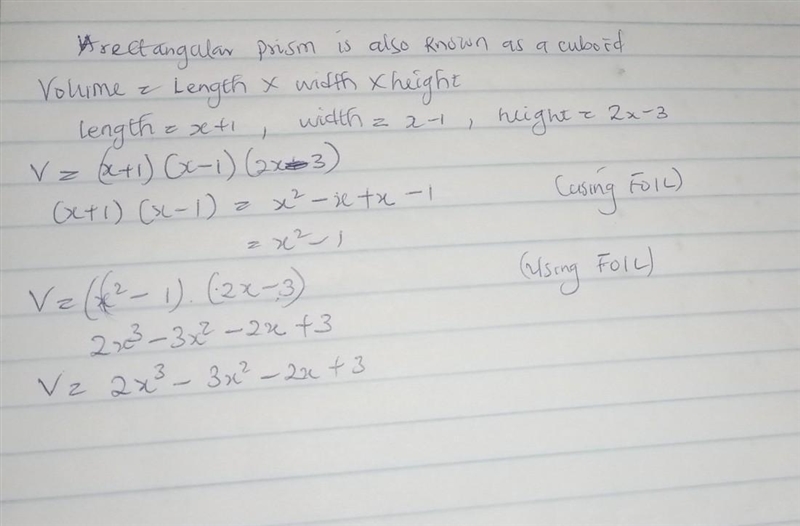 A rectangular prism is also known as a cuboid
Volume = Length × width × height
length = x+1 , width = x-1 , height = 2x-3
V = (x+1) (x-1) (2x-3)
(x+1) (x-1) = x² - x + x - 1 (using FOIL)
= x² - 1
V = ((x² - 1) . (2x-3) (Using FOIL)
2x³ - 3x² - 2x + 3
V = 2x³ - 3x² - 2x + 3